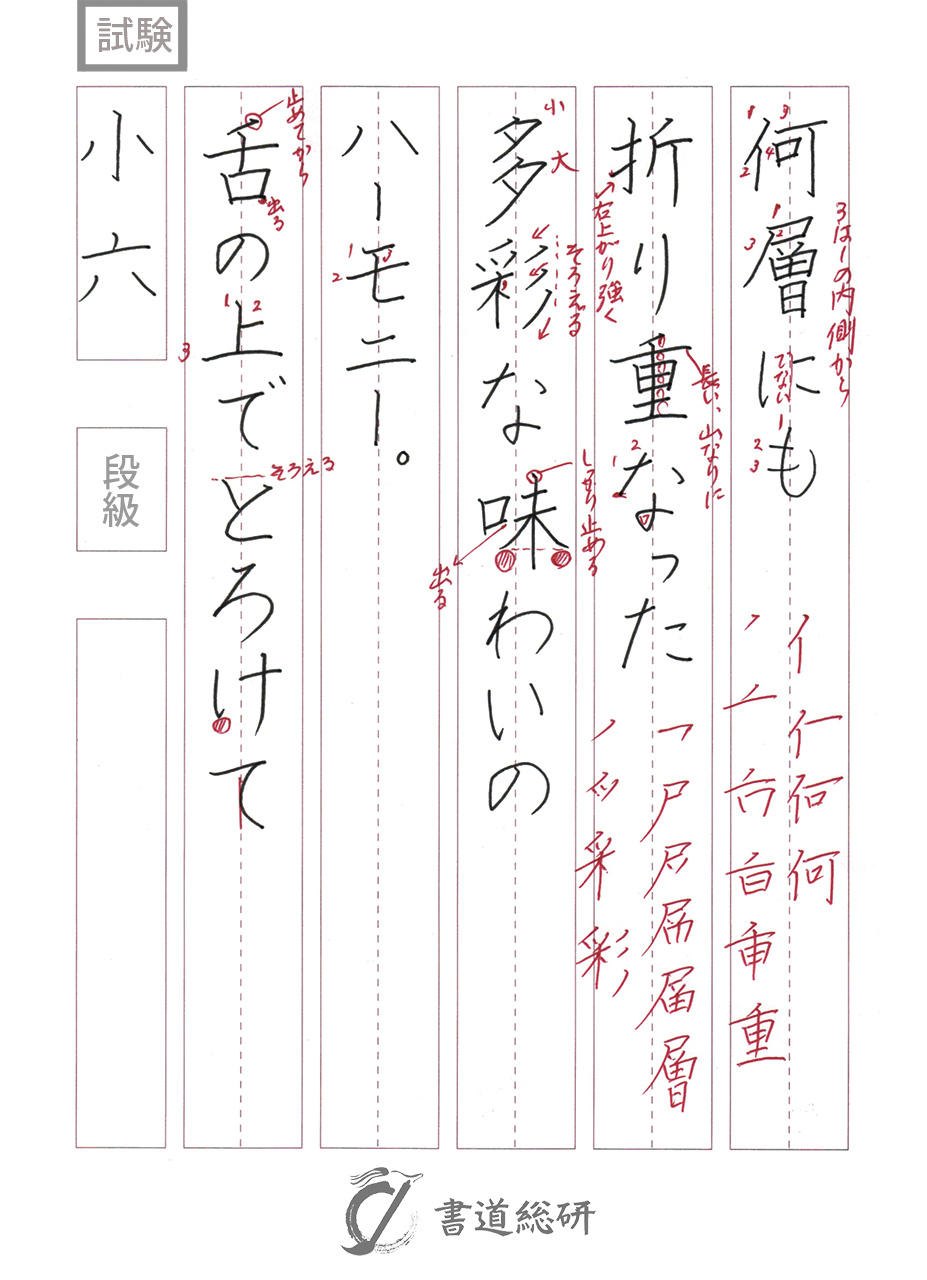 試験
何層にも
折り重なった
多彩な味わいの
ハーモニー。
舌の上でとろけて
小六
段級
3は1の内側から
でない
長い、山なりに
右上がり強く
小
大
そろえる
しっかり止める
出る
止めてから
出る
そろえる
亻 仁 何 何
重
尸 層
彩
書道総研